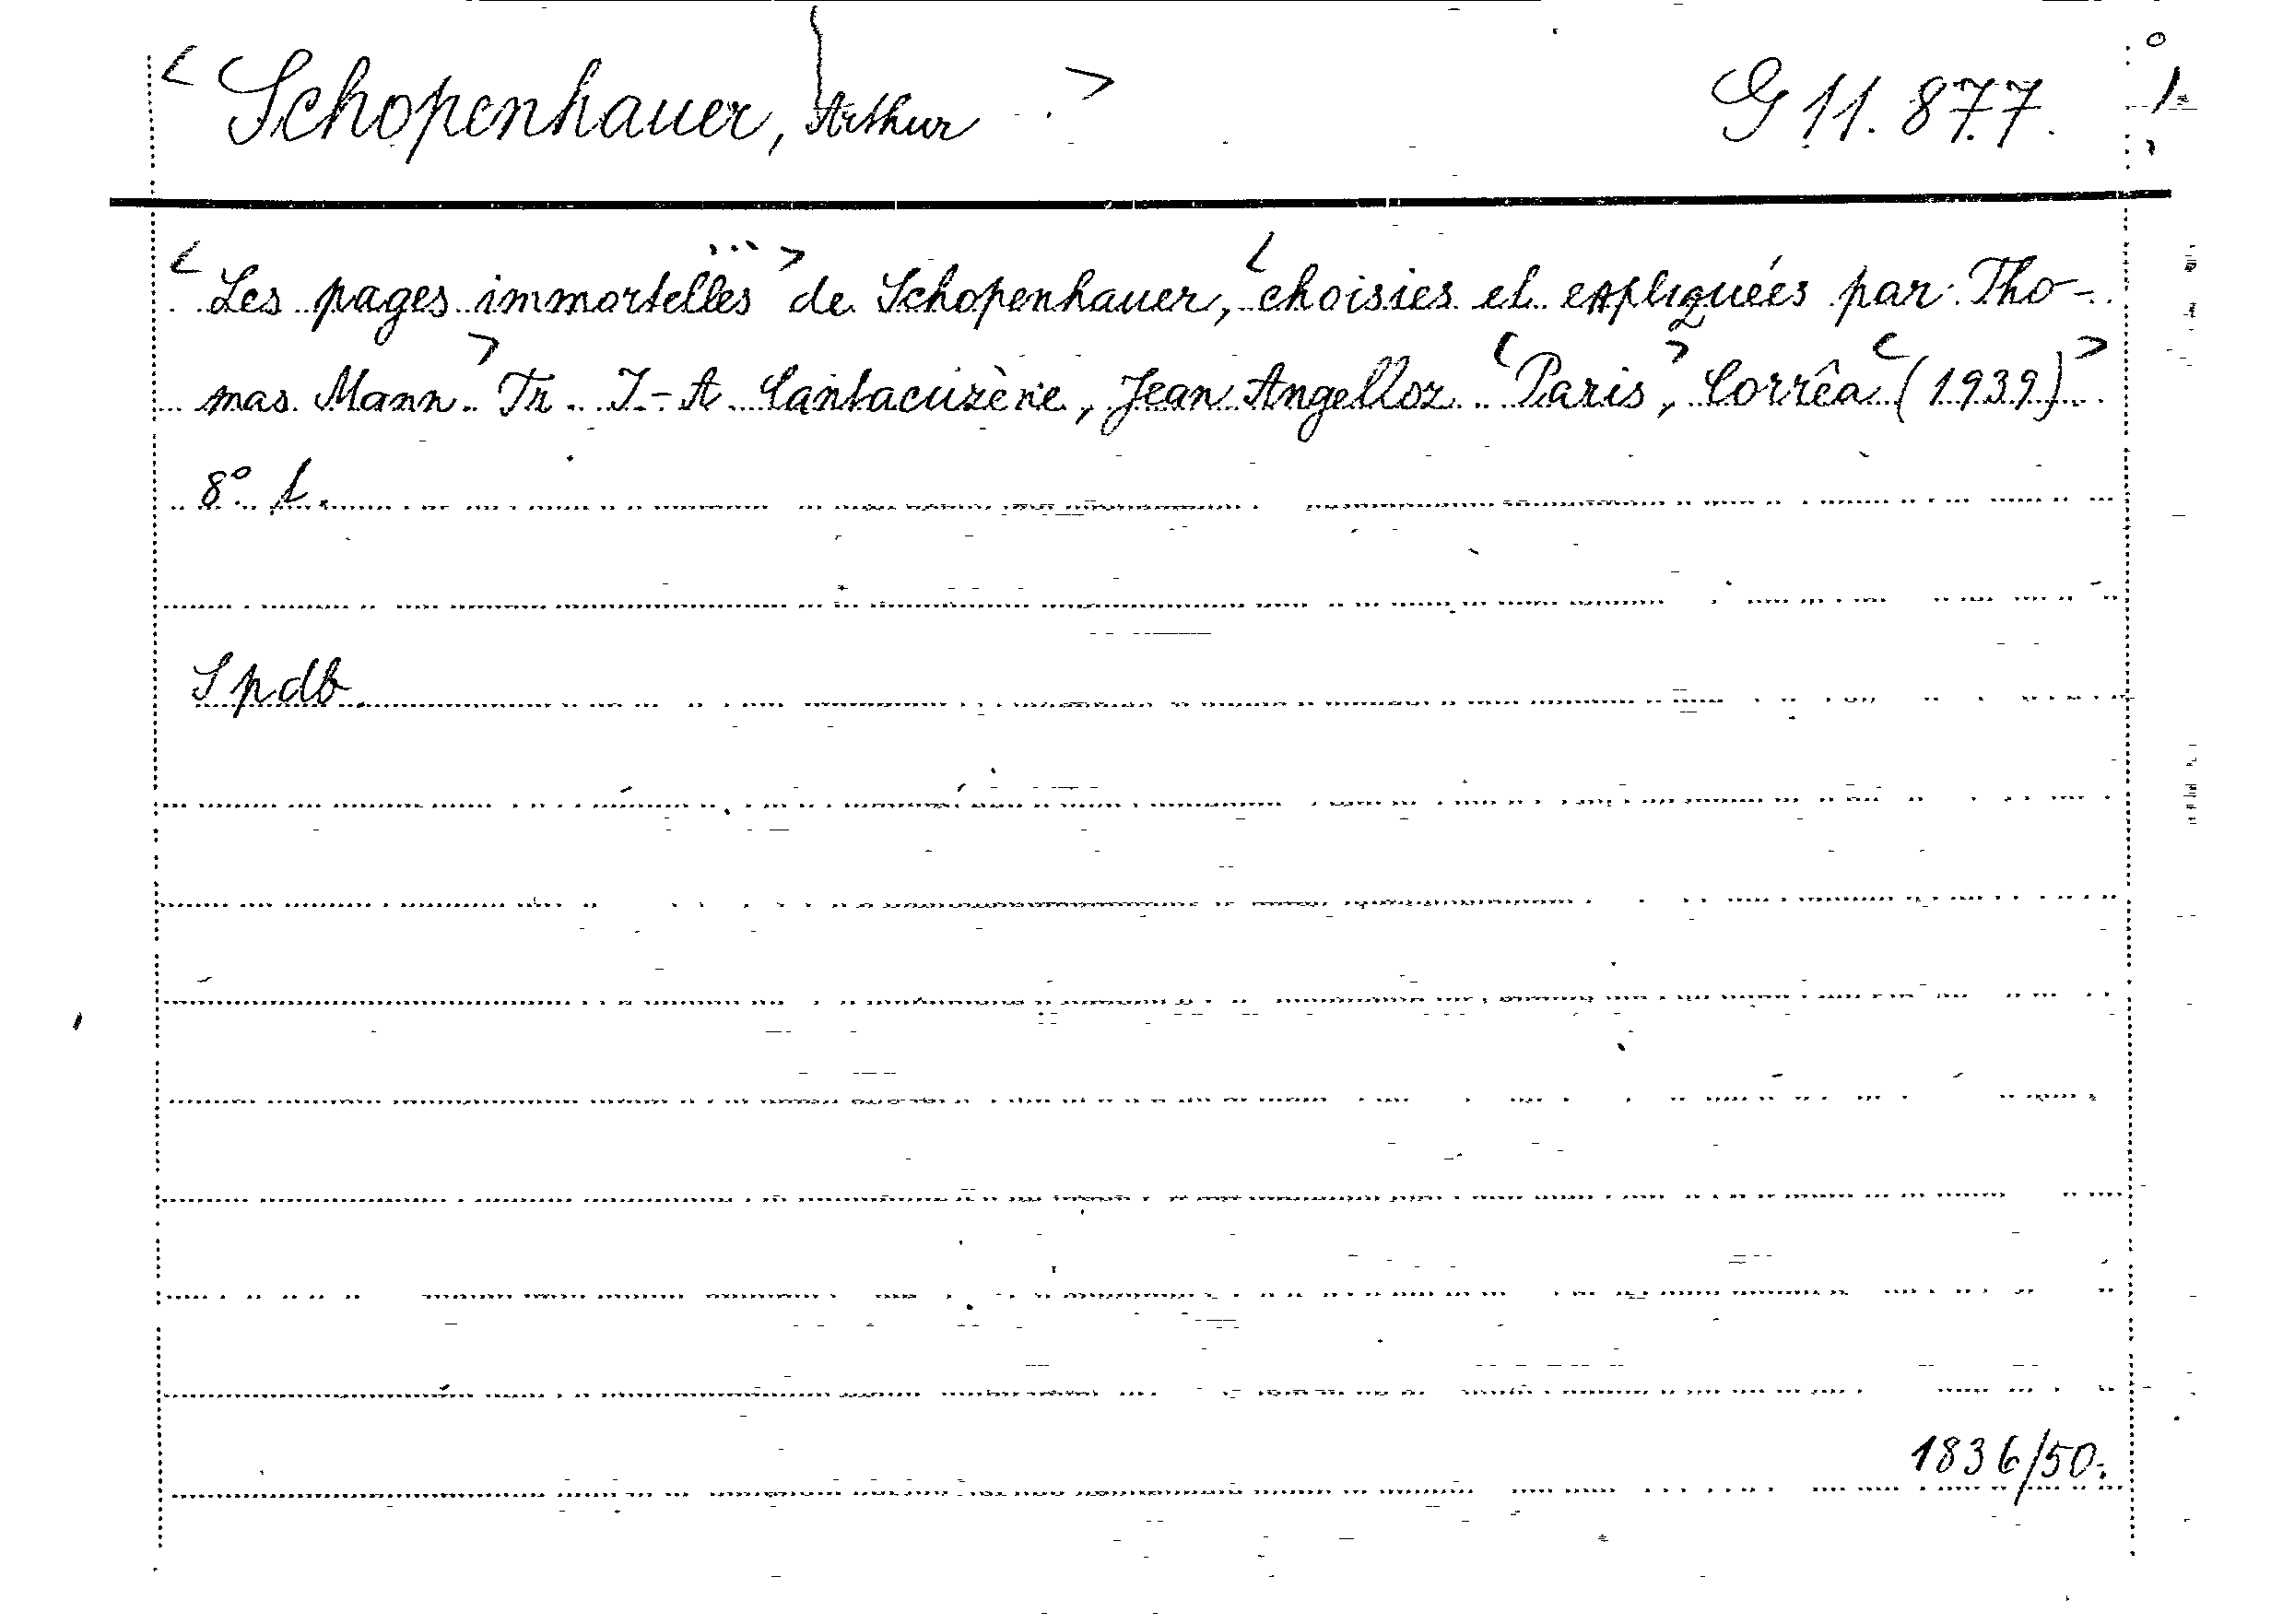 < Schopenhauer, Arthur > G 11.877.
< Les pages immortelles ... > de Schopenhauer, < choisies et expliquées par Tho-
mas Mann > Tr. J.-A Cantacuzène, Jean Angelloz < Paris >, Corrêa < (1939) >
8° L.
Spdb.
1836/50.